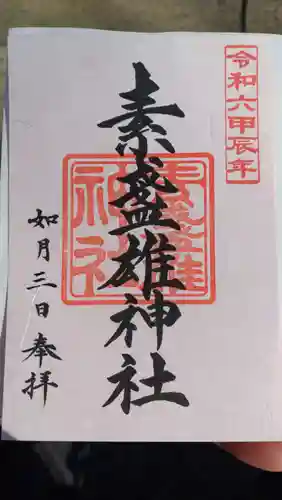 令和六甲辰年
素盞雄神社
如月三日奉拝